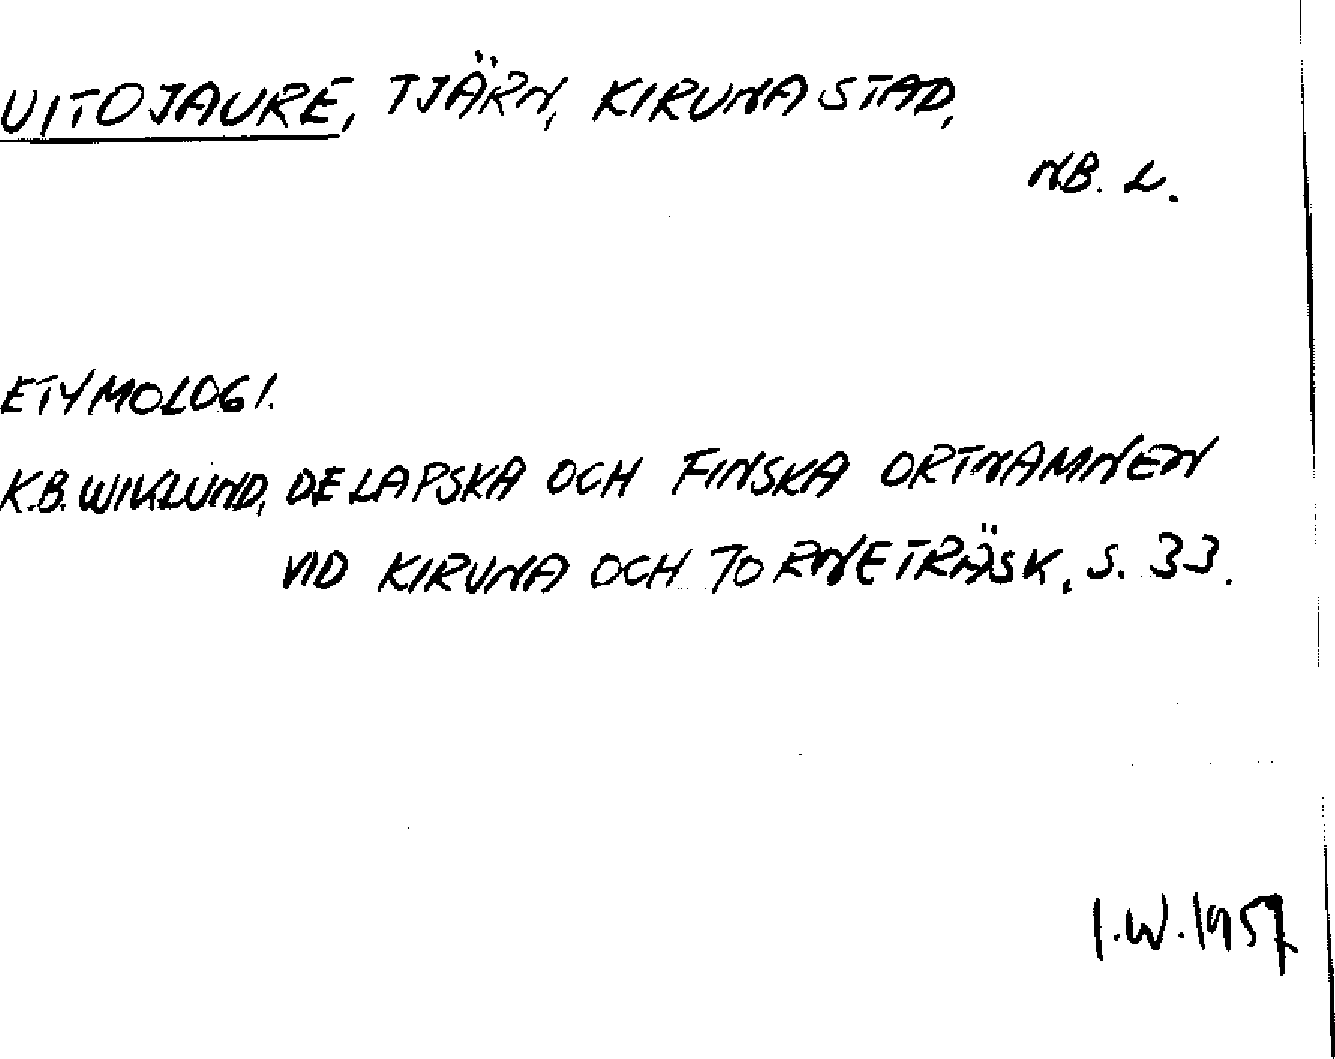 UITOJAURE, TJÄRN, KIRUNA STAD,
NB. L.
ETYMOLOGI.
K.B. WIKLUND, DE LAPSKA OCH FINSKA ORTNAMNEN
VID KIRUNA OCH TORNETRÄSK, S. 33.
I.W. 1957